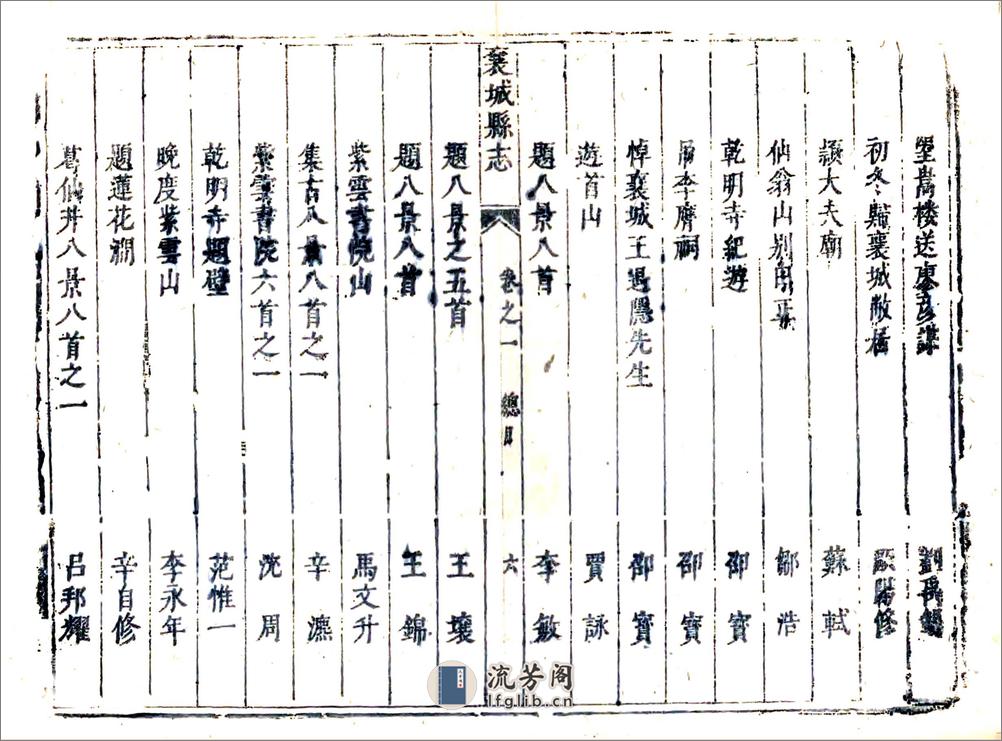 嵩楼送 劉禹錫
初冬歸襄城敝居 歐陽修
潁大夫廟 蘇軾
仙翁山別 鄒浩
乾明寺紀遊 邵寶
李膺祠 邵寶
悼襄城王隱先生 邵寶
遊首山 賈詠
題八景八首 李敏
襄城縣志 卷之一 總目 六
題八景之五首 王壤
題八景八首 王錦
紫雲書院山 馬文升
集古八景八首之一 辛
紫雲書院六首之一 沈周
乾明寺題壁 范惟一
晚度紫雲山 李永年
題蓮花澗 辛自修
葛仙井八景八首之一 呂邦耀
流芳阁
lfglib.cn